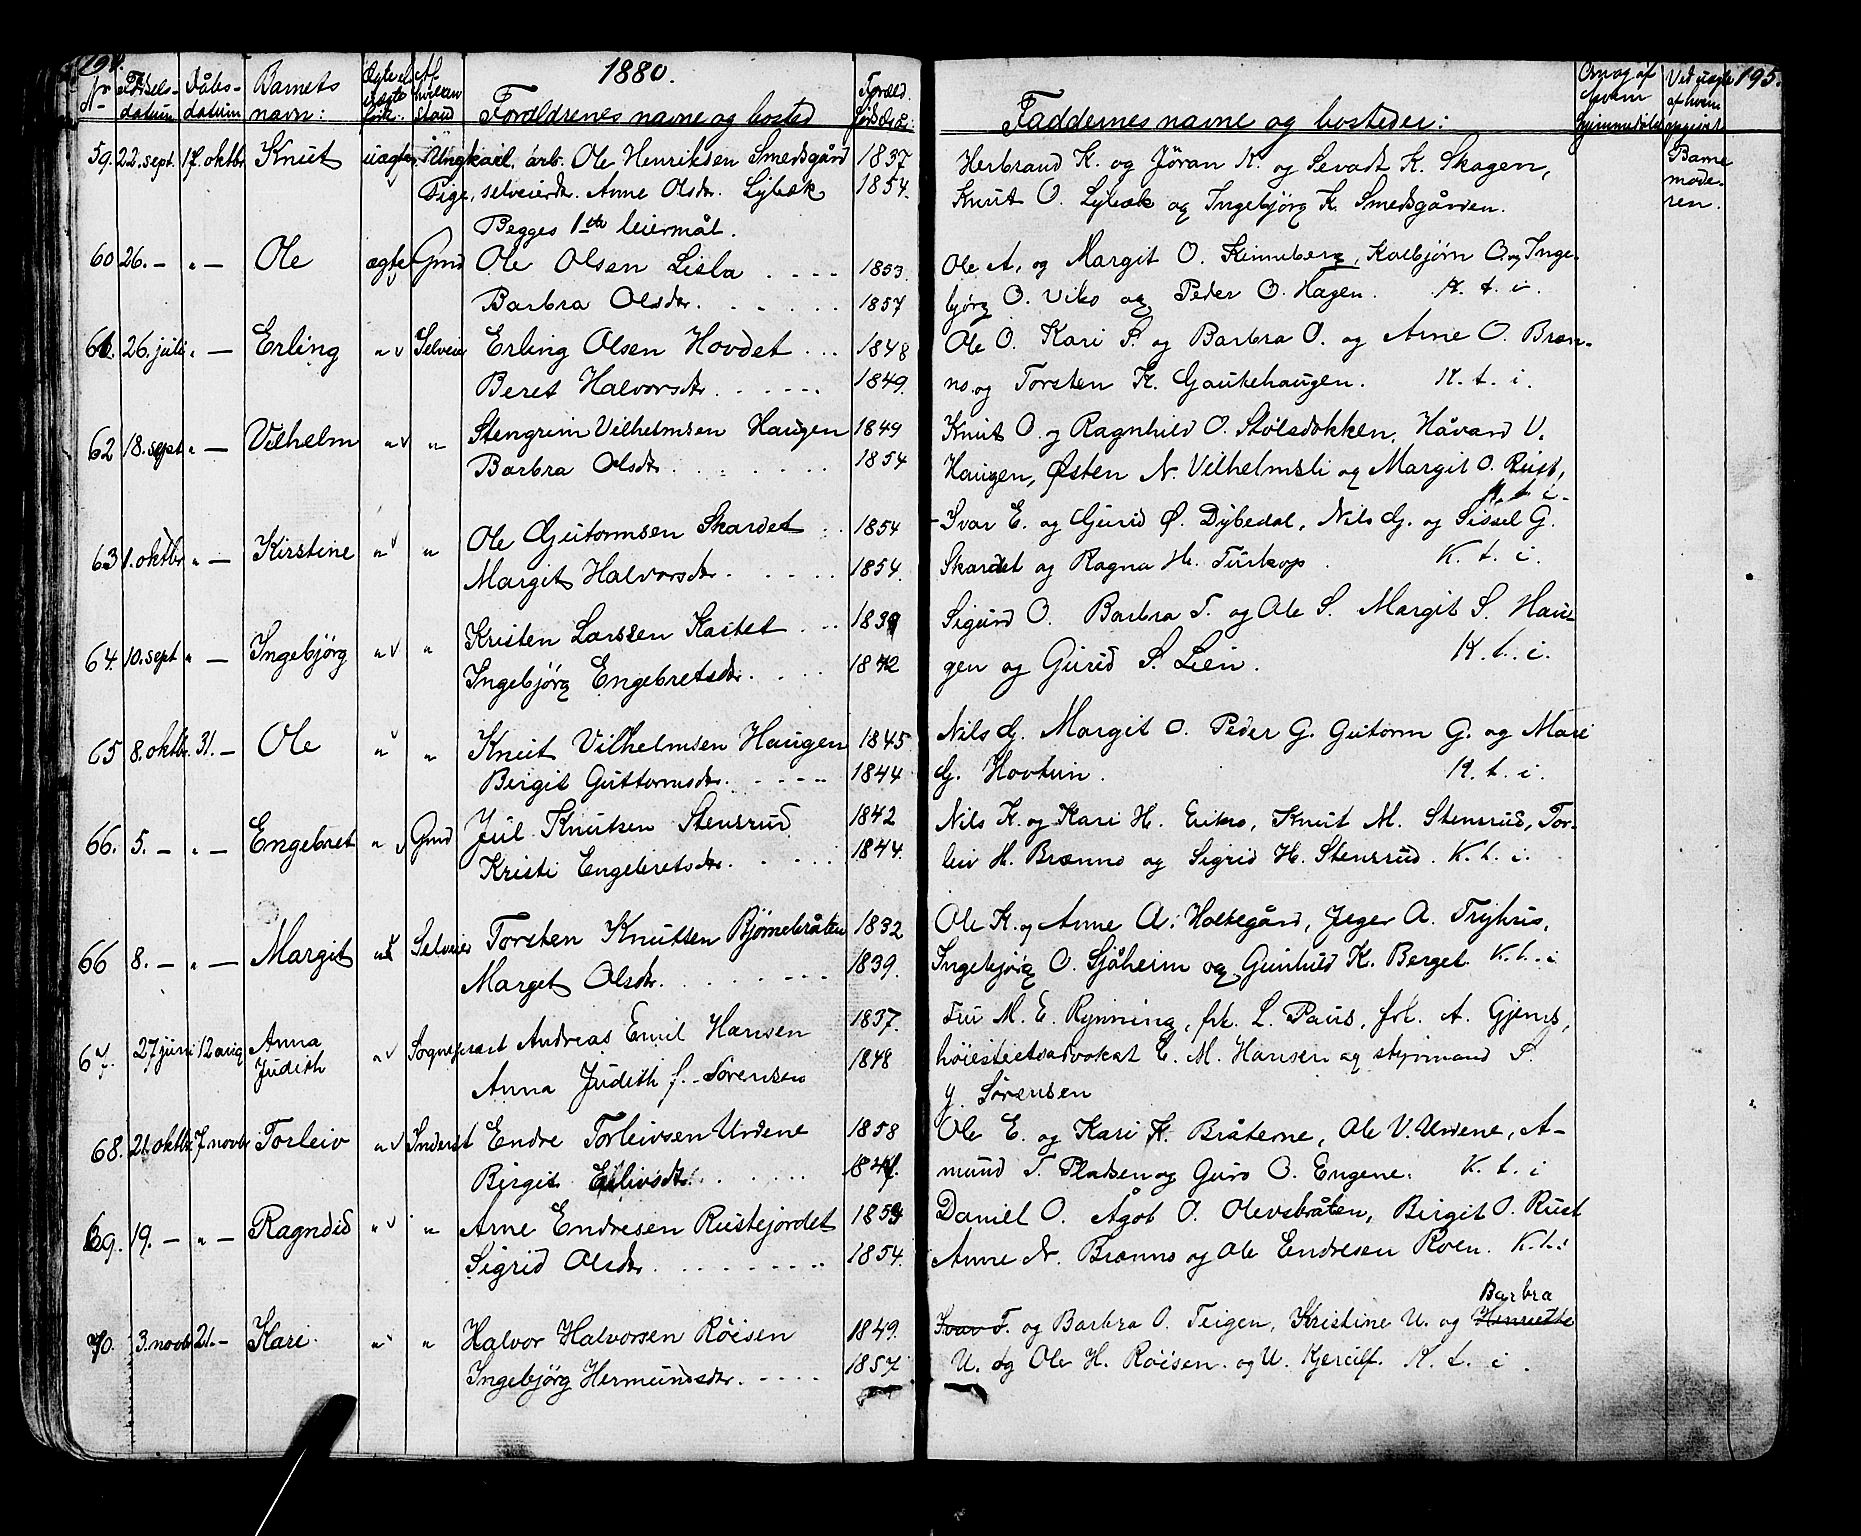 194.
1880.
Nr Fødsels- datum Dåbs- datum Barnets navn: Ægte el uægte født. Af hvilken stand Forældrenes navne og bosted Foræld. fødselsår:
59. 22. sept. 17. oktbr Knut uægte Ungkarl, arb. Ole Henriksen Smedsgård 1837
Pige, selveierdr. Anne Olsdr. Lybæk 1854.
Begges 1ste leiermål.
60 26. — " — Ole ægte Gmd Ole Olsen Lisla . . . . 1853
Barbra Olsdr. . . . . . 1857
61. 26. juli " — Erling " v Selveier Erling Olsen Hovdet . . . 1848
Beret Halvorsdr. . . . . . 1849.
62 18. sept " — Vilhelm " v " Stengrim Vilhelmsen Haugen 1849
Barbra Olsdr. . . . . . 1854
63 1. oktbr " — Kirstine " v " Ole Guttormsen Skardet . . 1854
Margit Halvorsdr. . . . . . 1854.
64. 10. sept " — Ingebjörg " v " Kristen Larssen Kastet . . . 1839
Ingebjörg Engebretsdr. . . . . 1842
65 8. oktbr. 31. — Ole " v " Knut Vilhelmsen Haugen 1845
Birgit Guttormsdr. . . . . . 1844
66. 5. — " — Engebret " v Gmd Jul Knutsen Stensrud 1842
Kristi Engebretsdr. . . . . 1844.
66 8. — " — Margit " v Selveier Torsten Knutsen Bjørnebråten 1832
Marget Olsdr. . . . . . . 1839.
67. 27 juni 12 aug Anna Judith " v Sogneprest Andreas Emil Hansen 1837.
Anna Judith f. Sørensen 1848
68. 21. oktbr 7. novbr Torleiv " v Inderst Endre Torleivsen Urdene 1858
Birgit Eilivsdr. . . . . . 1847.
69. 19. — " — Ragndid " v " Arne Endresen Rustejordet 1859
Sigrid Olsdr. . . . . . . . 1854.
70. 3. novbr 21. - Kari. " v " Halvor Halvorsen Röisen 1849.
Ingebjörg Hermundsdr. . . . . 1857.
195.
Faddernes navne og bosteder: Om og af hvem hjemmedøbt Ved uægte af hvem opgivet
Herbrand K. og Jöran K. og Sevadt K. Skagen, Barne
Knut O. Lybæk og Ingebjörg K. Smedsgården. mode-
ren.
Ole A. og Margit O. Kinneberg, Kolbjörn O. og Inge-
bjørg O. Viko og Peder O. Hagen. K. t. i.
Ole O. Kari S. og Barbra O. og Arne O. Bræn-
no. og Torsten K. Gaukehaugen. K. t. i.
Knut O. og Ragnhild O. Stølsdokken, Håvard V.
Haugen, Østen N. Vilhelmsli og Margit O. Rust,
K. t. i.
Ivar E. og Gurid Ø. Dybedal, Nils G. og Sissel G.
Skardet og Ragna H. Turkop. K. t. i.
Sigurd O. Barbra T. og Ole S. Margit S. Hau-
gen og Gurid S. Lien. K. t. i.
Nils G. Margit O. Peder G. Gutorm G. og Mari
G. Hovtun. K. t. i.
Nils K. og Kari H. Erikso, Knut M. Stensrud, Tor-
leiv H. Brænno og Sigrid H. Stensrud. K. t. i.
Ole K. og Anne A. Holtegård, Jeger A. Tryhus,
Ingebjörg O. Sjåheim og Gunhild K. Berget K. t. i
Fru M. E. Rynning, frk. L. Paus, frk. A. Gjems,
høiestretsadvokat E. M. Hansen og styrmand S.
G. Sørensen
Ole E. og Kari K. Bråterne, Ole V. Urdene, A-
mund T. Pladsen og Guro O. Engene. K. t. i
Daniel O. Ågot O. Olevsbråten, Birgit O. Rust
Anne N. Brænno og Ole Endresen Roen. K. t. i
Barbra
Ivar T. og Barbra O. Teigen, Kristine U. og Henriette
U. og Ole H. Röisen. og U. Kjerulf. K. t. i.